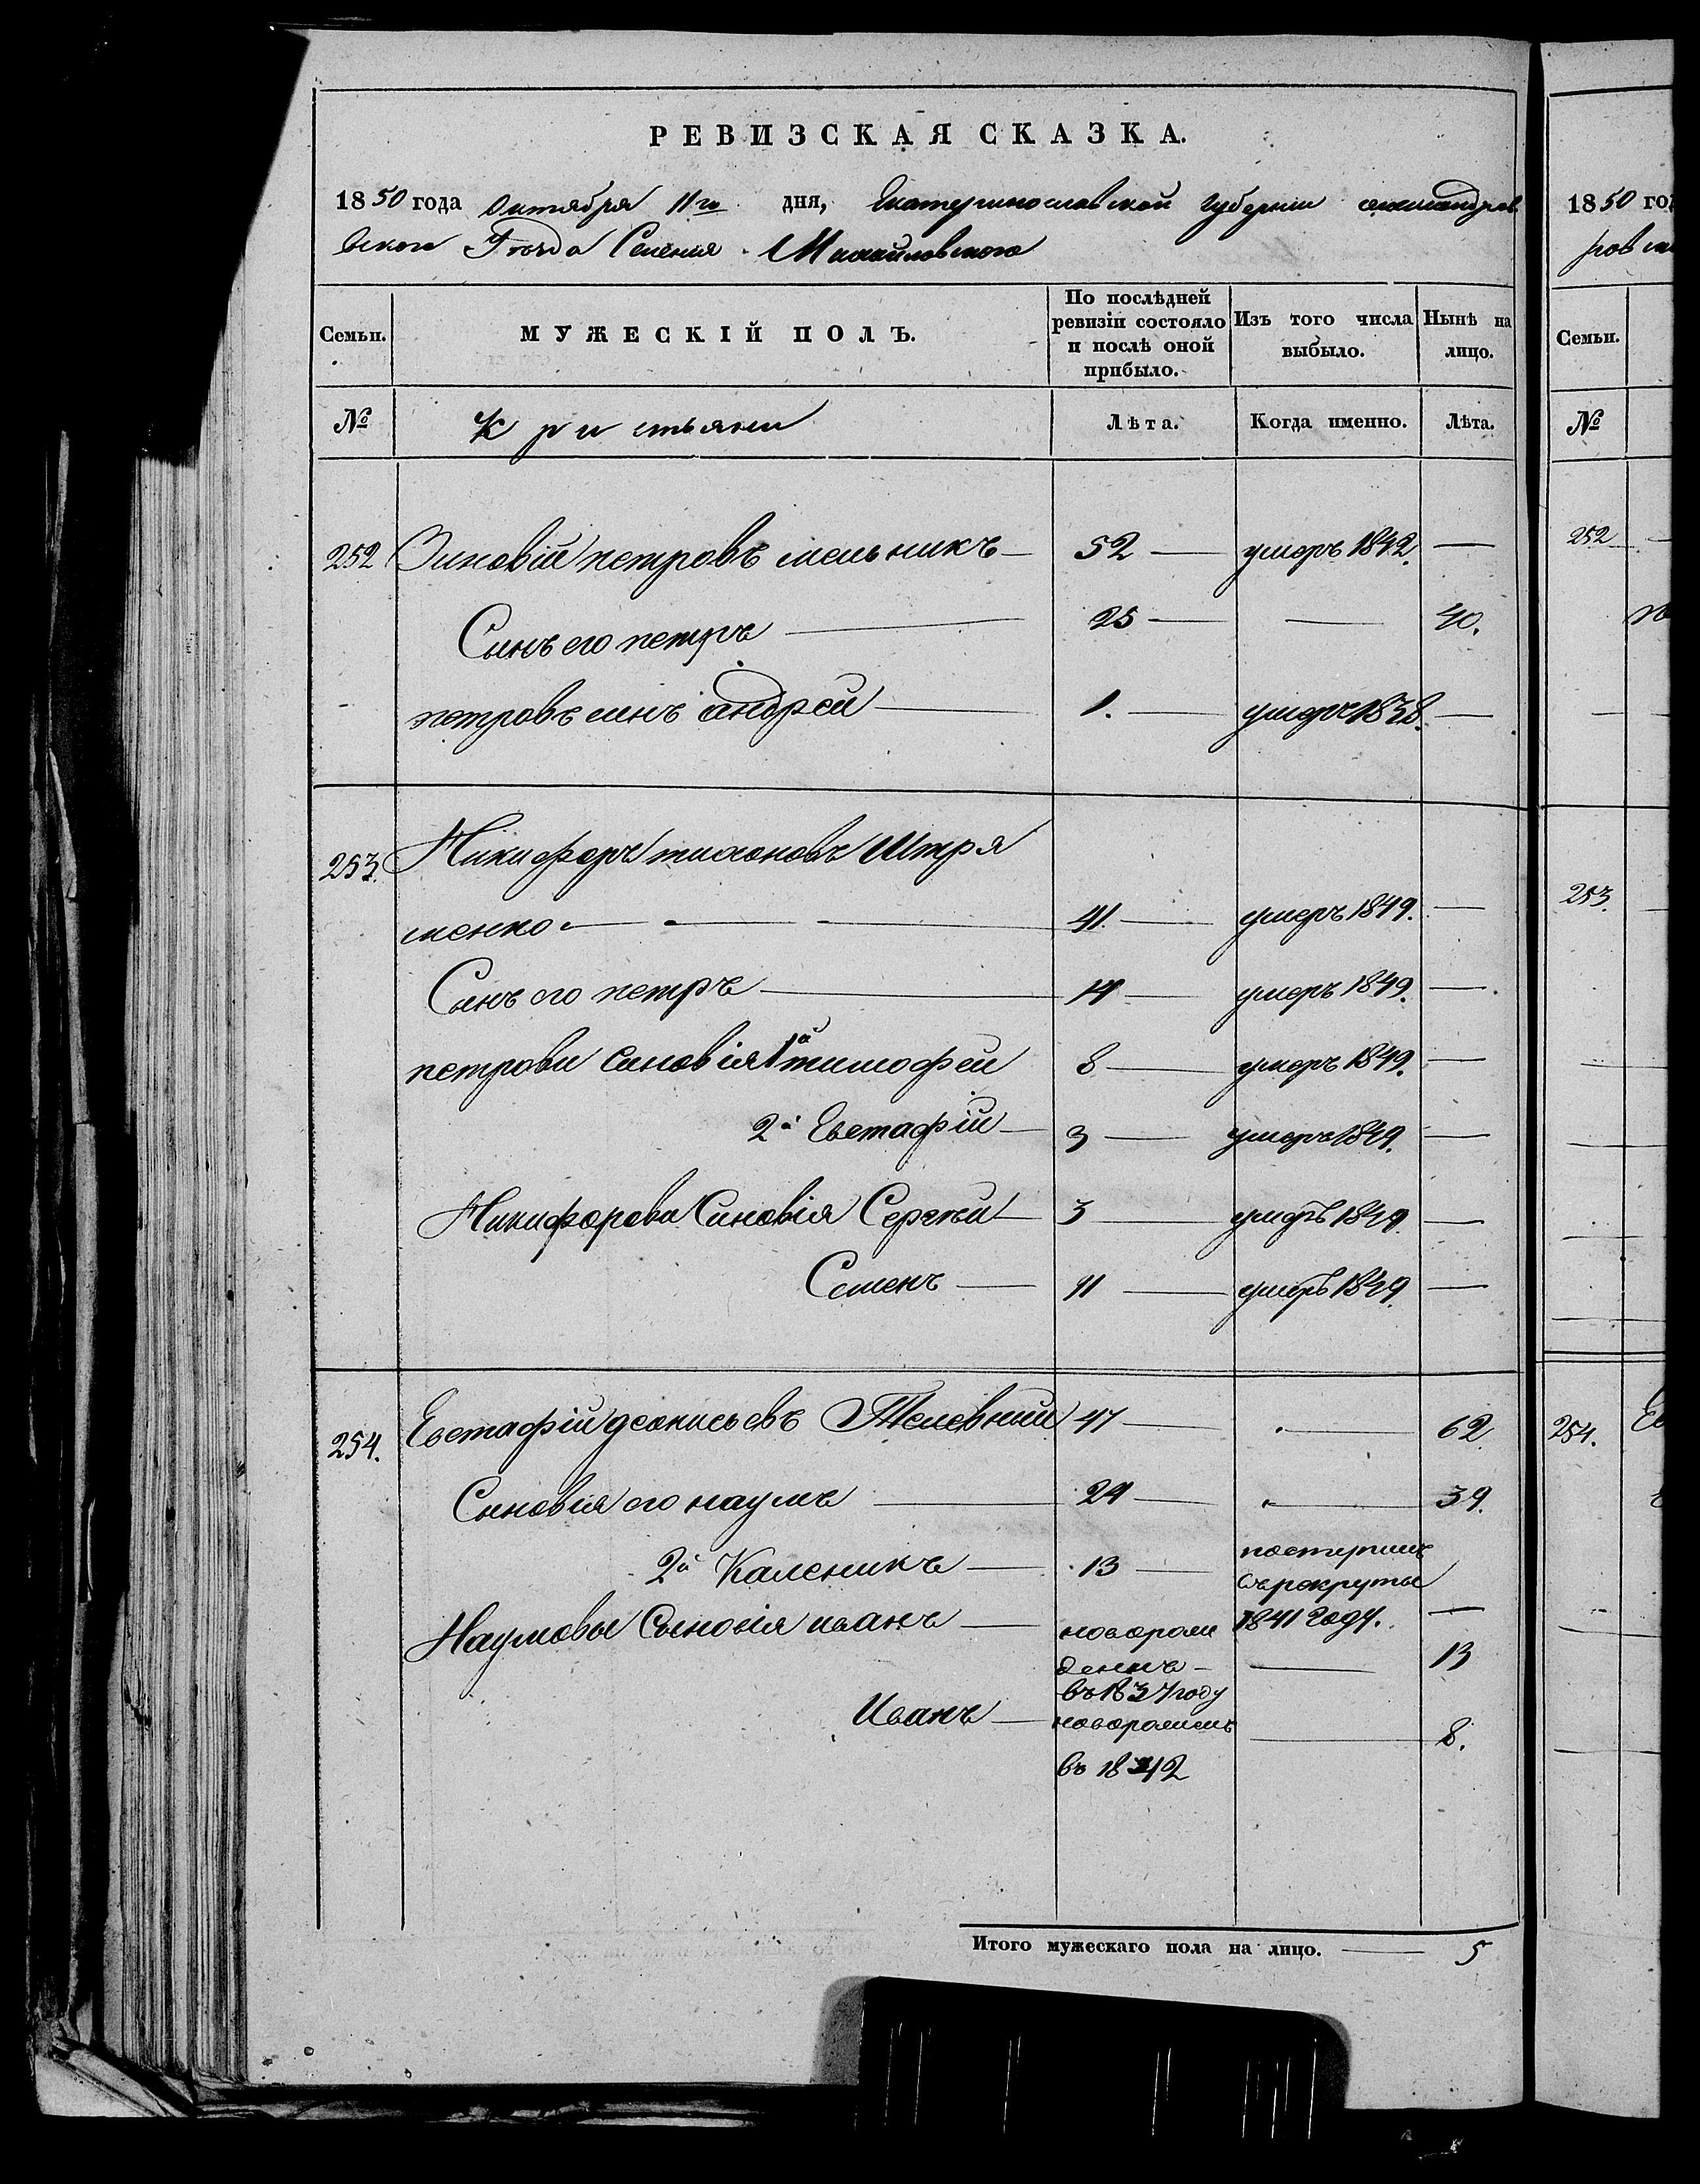 РЕВИЗСКАЯ СКАЗКА.
1850 года Октября 11го дня, Екатеринославской губернии александров
вского Уезда Селения Михайловского
Семьи. МУЖЕСКІЙ ПОЛЪ. По послѣдней ревизіи состояло и послѣ оной прибыло. Изъ того числа выбыло. Нынѣ на лицо.
№ Кристьяни Лѣта. Когда именно. Лѣта.
252 Зиновій петровъ мельникъ 52 умеръ 1842. —
Сынъ его петръ 25 — 40.
петровъ синъ андрей 1. умеръ 1838. —
253. Никифоръ тихоновъ Штря
менко 41. умеръ 1849. —
Синъ его петръ 14 умеръ 1849. —
петрови синовія 1й тимофей 8 умеръ 1849. —
2й Евстафій 3 умеръ 1849. —
Никифорови Синовія Сергѣй 3 умеръ 1849. —
Семенъ 11 умеръ 1849. —
254. Евстафій деонисьевъ 47 — 62.
Синовія его наумъ 24 — 39.
2й Каленикъ 13 поступилъ
въ рекруты
1841 году. —
Наумовы Сыновія иванъ новорож
деннъ — 13
въ 1837 году
Иванъ новорожденъ — 8.
въ 1842
Итого мужескаго пола на лицо. — 5
1850 год
ров
Семьи.
№
252
253.
254. Ев